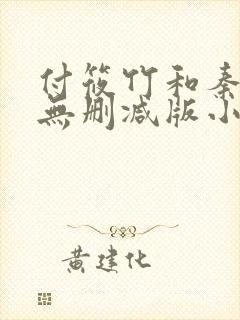 付筱竹和秦
無删减版小
黄建化